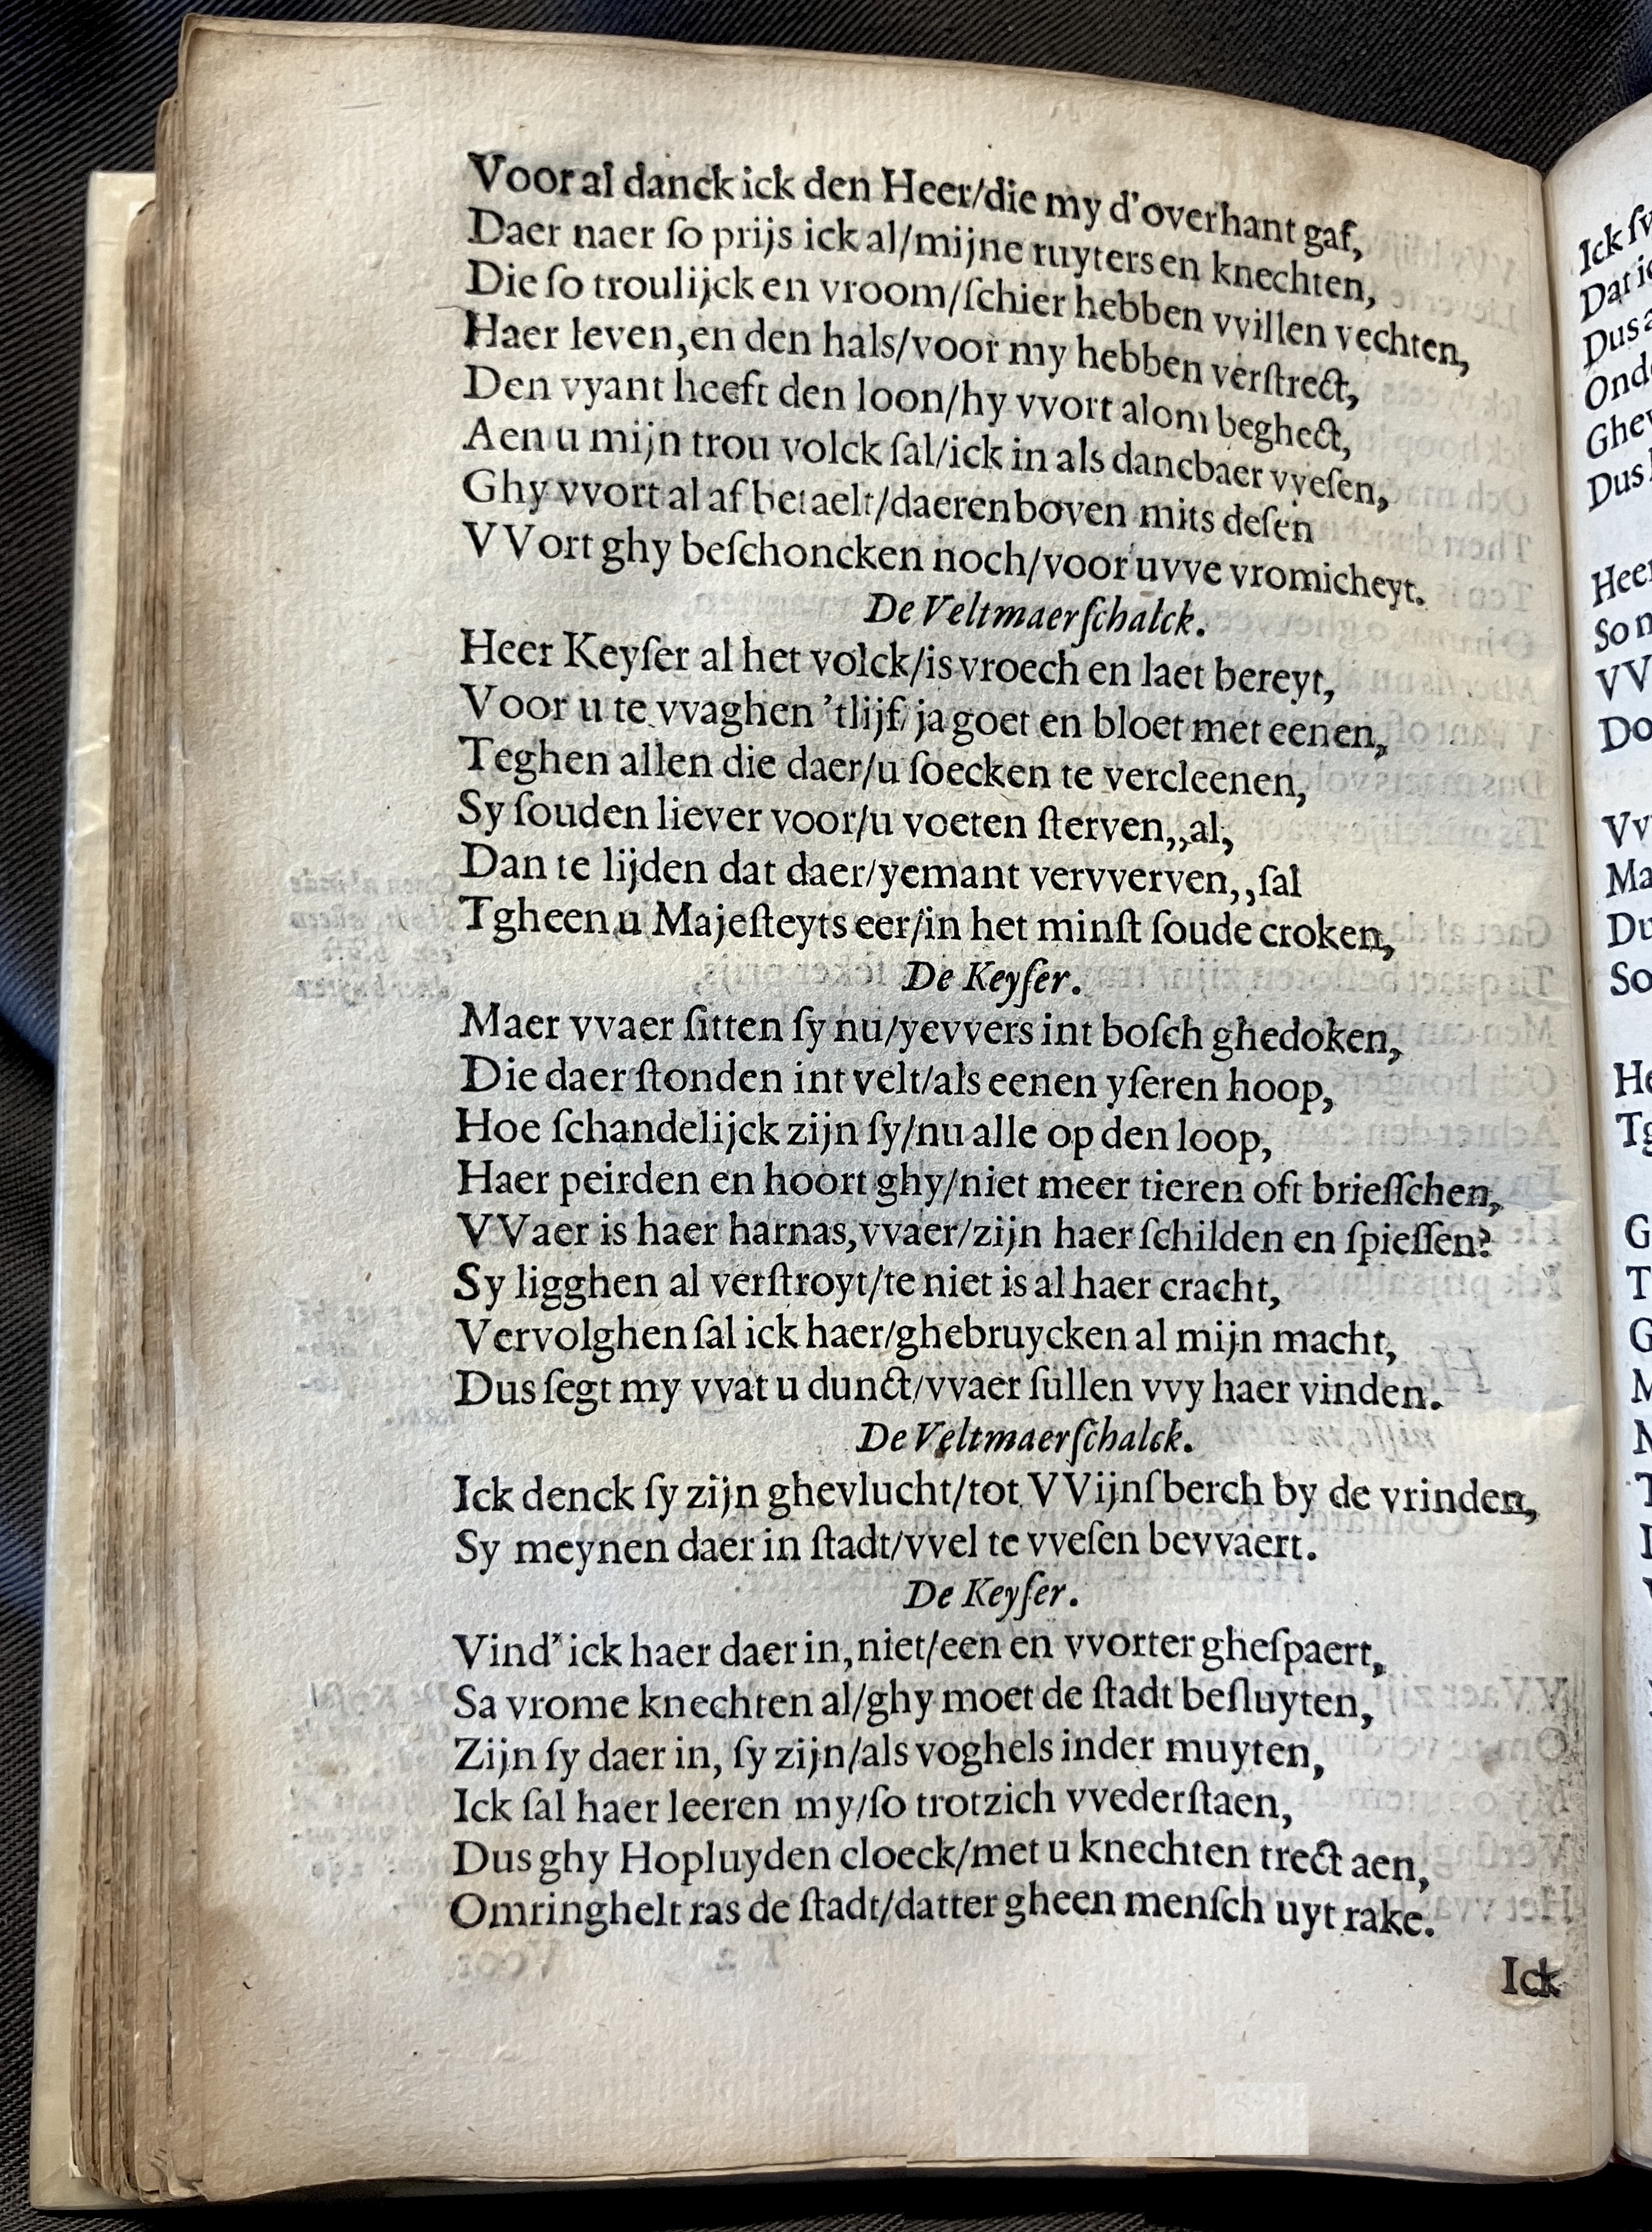 Voor al danck ick den Heer/die my d'overhant gaf,
Daer naer ſo prijs ick al/mijne ruyters en knechten,
Die ſo troulijck en vroom/ſchier hebben vvillen vechten,
Haer leven,en den hals/voor my hebben verſtrect,
Den vyant heeft den loon/hy vvort alom beghect,
Aen u mijn trou volck ſal/ick in als dancbaer vveſen,
Ghy vvort al af betaelt/daerenboven mits deſen
VVort ghy beſchoncken noch/voor uvve vromicheyt.
De Veltmaerſchalck.
Heer Keyſer al het volck/is vroech en laet bereyt,
Voor u te vvaghen 'tlijf/ja goet en bloet met eenen,
Teghen allen die daer/u ſoecken te vercleenen,
Sy ſouden liever voor/u voeten ſterven,,al,
Dan te lijden dat daer/yemant vervverven,,ſal
Tgheen u Majeſteyts eer/in het minſt ſoude croken,
De Keyſer.
Maer vvaer ſitten ſy nu/yevvers int boſch ghedoken,
Die daer ſtonden int velt/als eenen yſeren hoop,
Hoe ſchandelijck zijn ſy/nu alle op den loop,
Haer peirden en hoort ghy/niet meer tieren oft brieſſchen,
VVaer is haer harnas,vvaer/zijn haer ſchilden en ſpieſſen?
Sy ligghen al verſtroyt/te niet is al haer cracht,
Vervolghen ſal ick haer/ghebruycken al mijn macht,
Dus ſegt my vvat u dunct/vvaer ſullen vvy haer vinden.
De Veltmaerſchalck.
Ick denck ſy zijn ghevlucht/tot VVijnſberch by de vrinden,
Sy meynen daer in ſtadt/vvel te vveſen bevvaert.
De Keyſer.
Vind' ick haer daer in,niet/een en vvorter gheſpaert,
Sa vrome knechten al/ghy moet de ſtadt beſluyten,
Zijn ſy daer in, ſy zijn/als voghels inder muyten,
Ick ſal haer leeren my/ſo trotzich vvederſtaen,
Dus ghy Hopluyden cloeck/met u knechten trect aen,
Omringhelt ras de ſtadt/datter gheen menſch uyt rake.
Ick